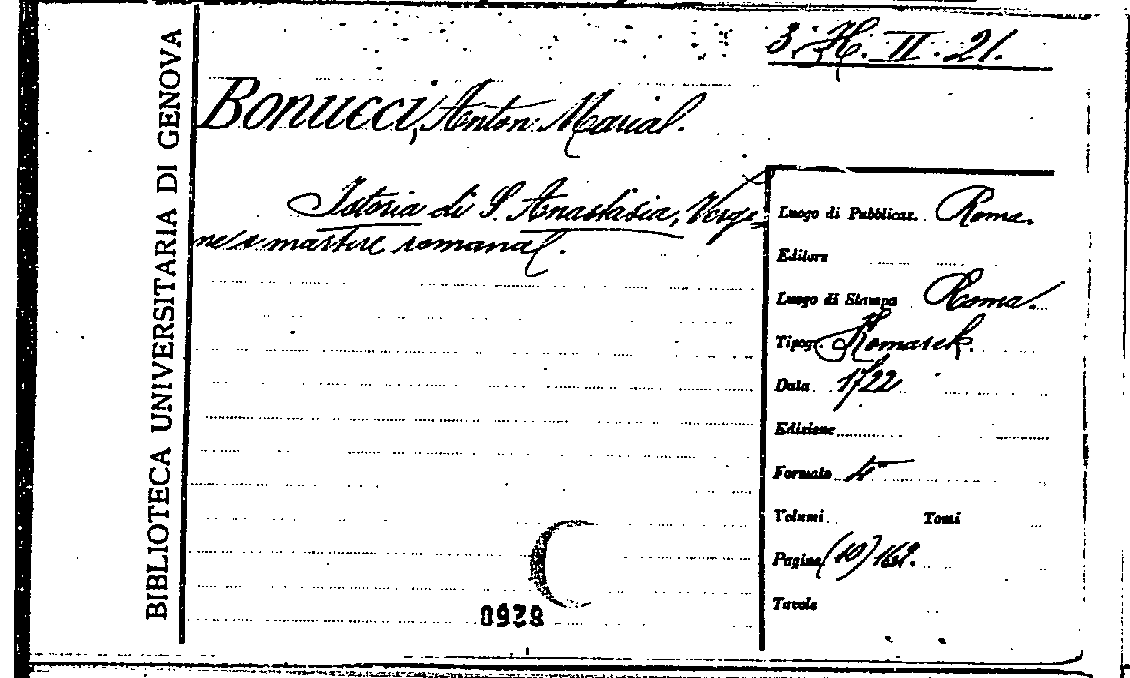 3. H. II. 21.
BIBLIOTECA UNIVERSITARIA DI GENOVA
Bonucci, Anton Maria.
Istoria di S. Anastasia, Verge
ne e martire romana.
Luogo di Pubblicaz. Roma.
Editore
Luogo di Stampa Roma.
Tipogr. Komarek.
Data 1722
Edizione
Formato 4°
Volumi Tomi
Pagine (10) 162.
Tavole
0928